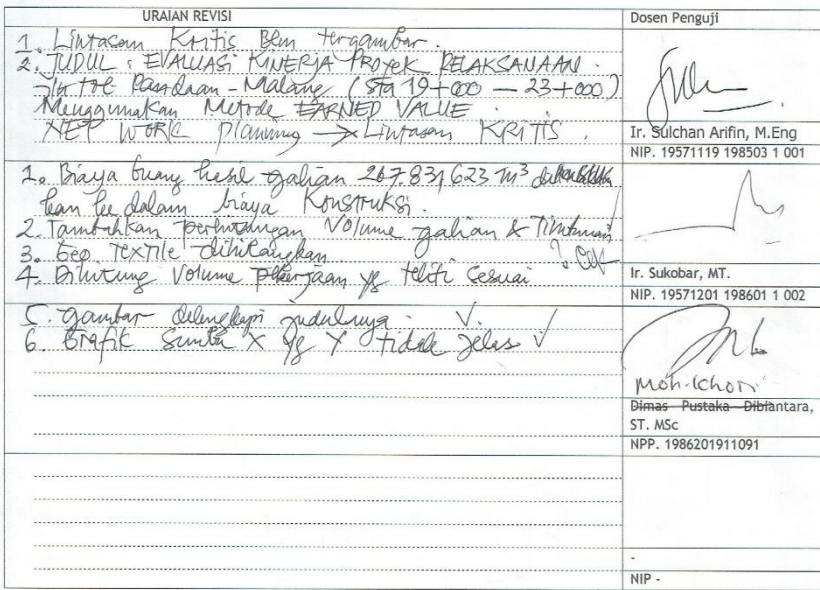 URAIAN REVISI
Dosen Penguji
1. Lintasan Kritis Blm tergambar.
2. JUDUL : EVALUASI KINERJA PROYEK PELAKSANAAN.
Jln tol Pandaan - Malang (Sta 19+000 — 23+000)
Menggunakan Metode EARNED VALUE.
NET WORK planning → Lintasan KRITIS.
Ir. Sulchan Arifin, M.Eng
NIP. 19571119 198503 1 001
1. Biaya buang hasil galian 267.831,623 m³
kan ke dalam biaya Konstruksi.
2. Tambahkan perhitungan Volume galian & Timbunan
3. Geo TEXTILE dihilangkan
4. Dihitung Volume pekerjaan yg teliti sesuai
Ir. Sukobar, MT.
NIP. 19571201 198601 1 002
5. gambar dilengkapi judulnya. V.
6. Grafik Sumbu X yg Y tidak jelas √
Moh. Khori
Dimas Pustaka Dibiantara,
ST. MSc
NPP. 1986201911091
-
NIP -